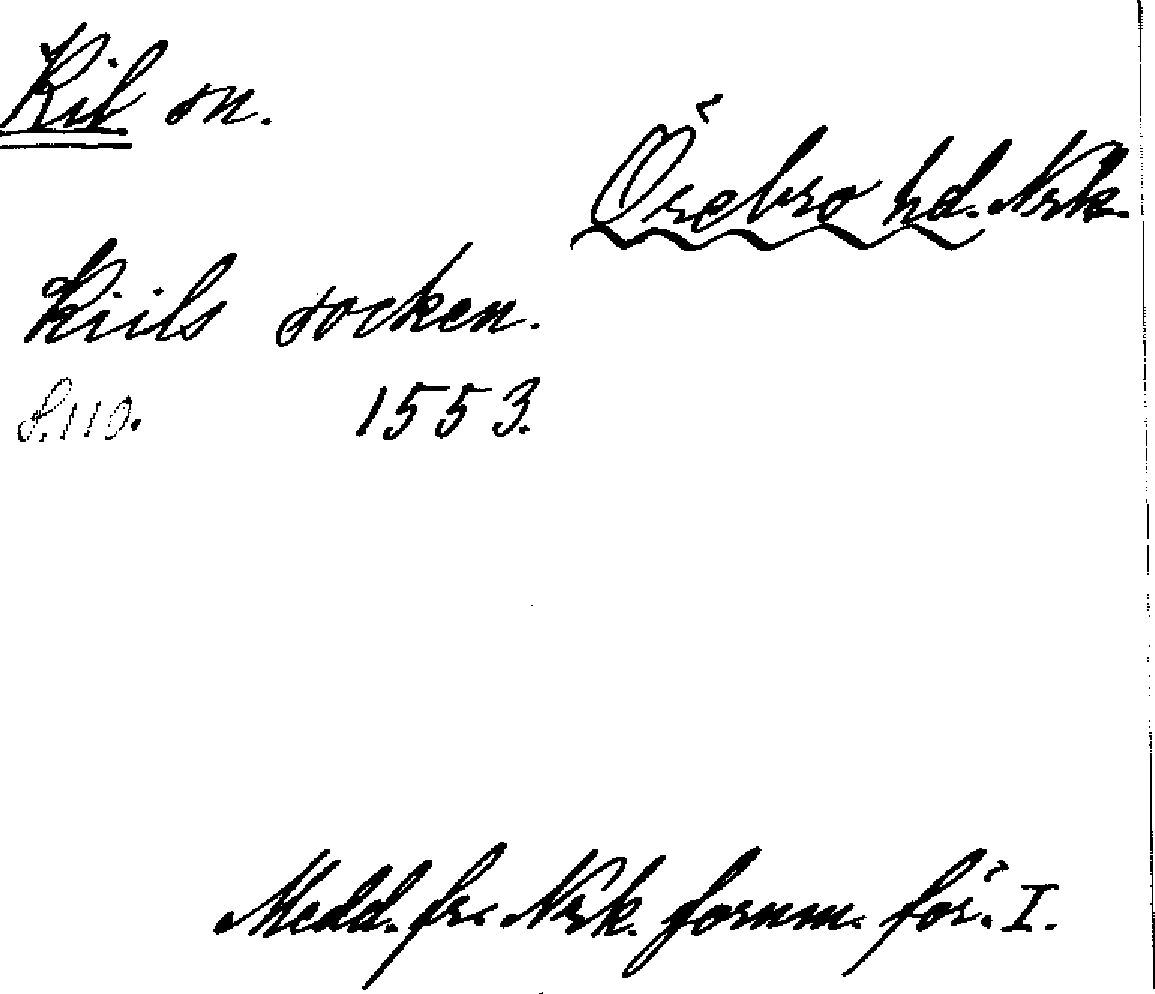 Kil sn.
Örebro hd. Nrk.
Kiils socken.
S. 110. 1553.
Medd. fr. Nrk. fornm. för. I.